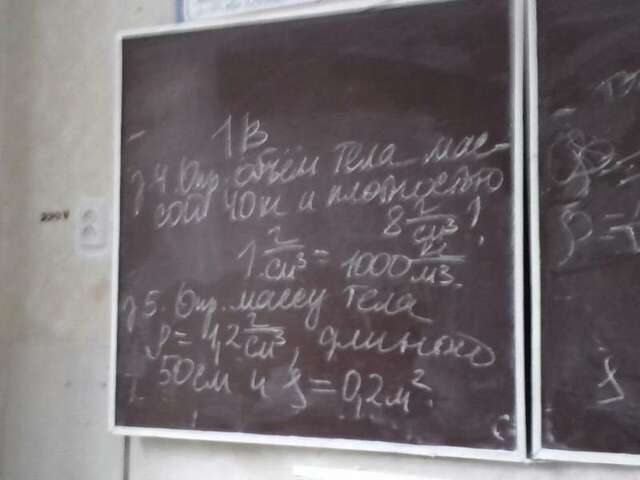 220V
1В
з 4. Опр. объём тела мас-
сой 40кг и плотностью
8 г/см³!
1 г/см³ = 1000 кг/м³.
з 5. Опр. массу тела
ρ = 1,2 г/см³, длиною
50см и S = 0,2м².